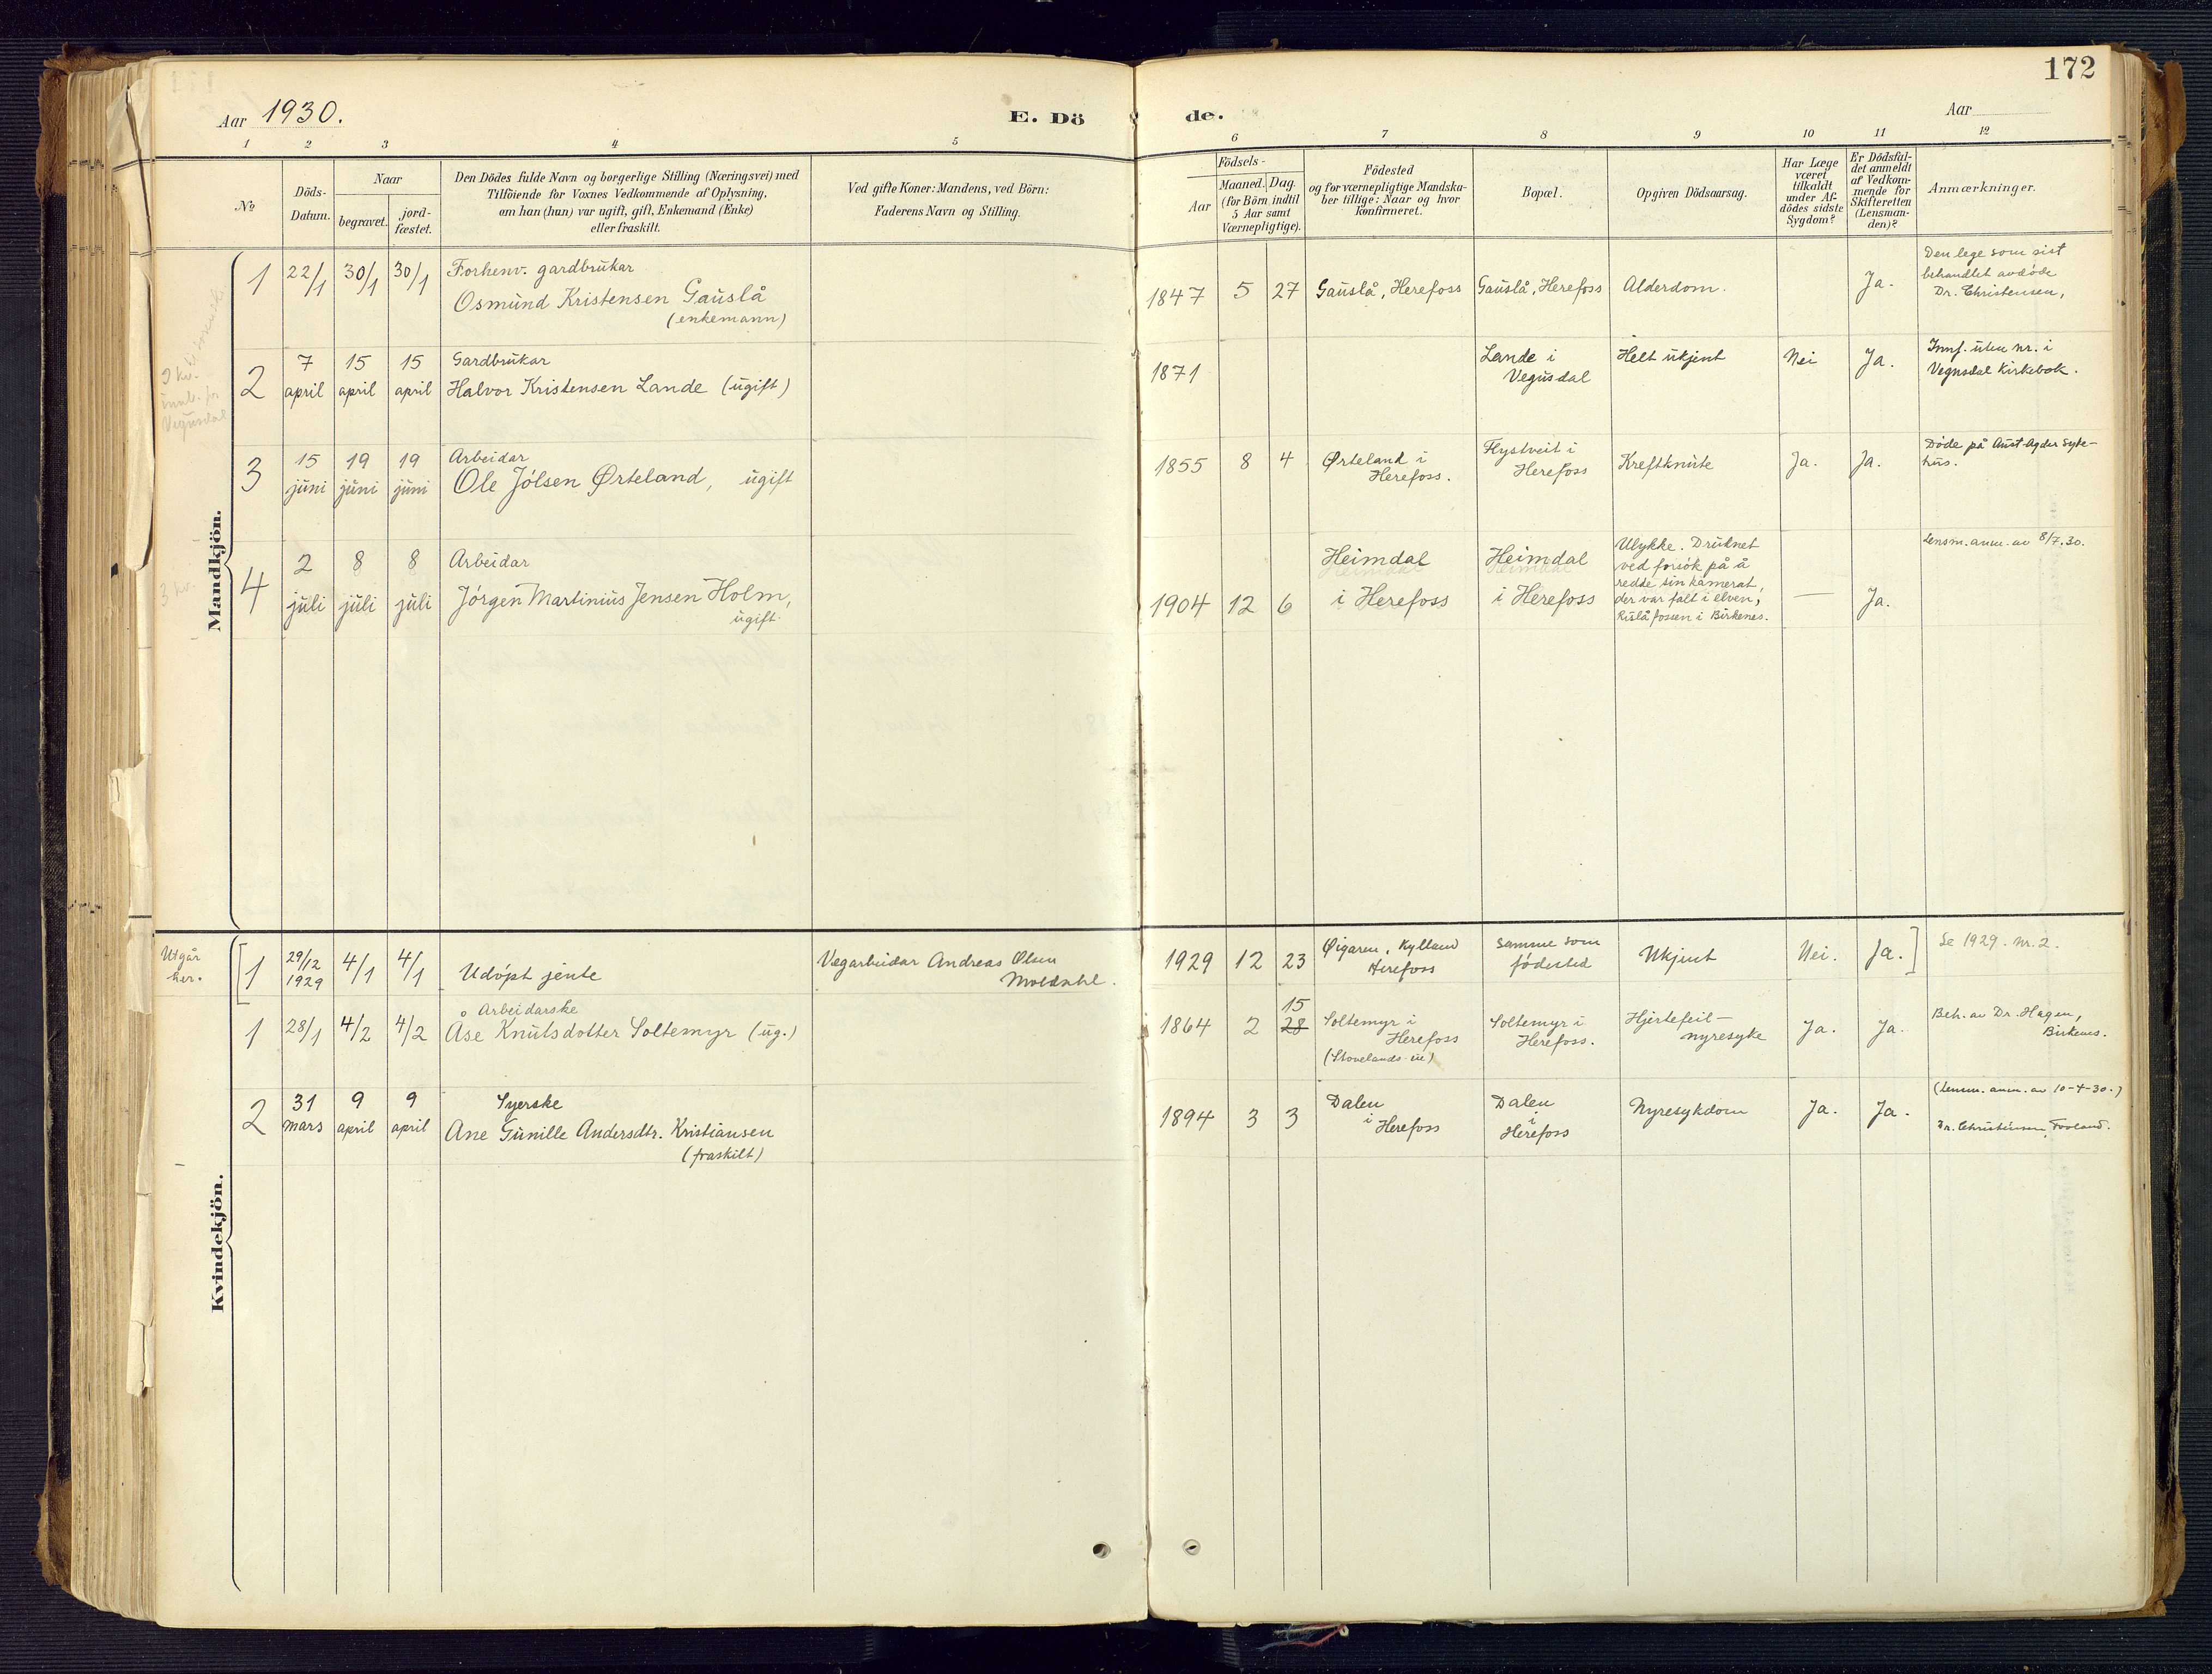 172
Aar 1930.
E. Dö
de.
Aar
1 2 3 4 5 6 7 8 9 10 11 12
No
Döds-
Datum.
Naar
begravet.
jord-
fæstet.
Den Dödes fulde Navn og borgerlige Stilling (Næringsvei) med
Tilföiende for Voxnes Vedkommende af Oplysning,
om han (hun) var ugift, gift, Enkemand (Enke)
eller fraskilt.
Ved gifte Koner: Mandens, ved Börn:
Faderens Navn og Stilling.
Födsels-
Aar
Maaned. Dag
(for Börn indtil
5 Aar samt
Værnepligtige).
Födested
og for værnepligtige Mandska-
ber tillige: Naar og hvor
konfirmeret.
Bopæl.
Opgiven Dödsaarsag.
Har Læge
været
tilkaldt
under Af-
dödes sidste
Sygdom?
Er Dödsfal-
det anmeldt
af Vedkom-
mende for
Skifteretten
(Lensman-
den)?
Anmærkninger.
Mandkjön.
1 22/1 30/1 30/1
Forhenv. gardbrukar
Osmund Kristensen Gauslå
(enkemann)
1847 5 27 Gauslå, Herefoss
Gauslå, Herefoss
Alderdom.
Ja.
Den lege som sist
behandlet avdøde
Dr. Christensen,
Vegusdal
2
7 april
15 april
15 april
Gardbrukar
Halvor Kristensen Lande (ugift)
1871
Lande i
Vegusdal
Helt ukjent
Nei
Ja.
Innf. uten nr. i
Vegusdal kirkebok.
3
15 juni
19 juni
19 juni
Arbeidar
Ole Jólsen Ørteland, ugift
1855 8 4
Ørteland i
Herefoss.
Flystveit i
Herefoss
Kreftknute
Ja.
Ja.
Døde på Aust-Agder syke-
hus.
4
2 juli
8 juli
8 juli
Arbeidar
Jörgen Martinius Jensen Holm,
ugift.
1904 12 6
Heimdal
i Herefoss
Heimdal
i Herefoss
Ulykke. Druknet
ved forsök på å
redde sin kamerat,
der var falt i elven,
Rislåfossen i Birkenes.
—
Ja.
Lensm. anm. av 8/7.30.
Kvindekjön.
Utgår
her.
[1
29/12
1929
4/1 4/1
Udöpt jente
Vegarbeidar Andreas Olsen
Moldahl.
1929 12 23
Øigaren, Kylland
Herefoss
samme som
födested
Ukjent
Nei.
Ja.]
Se 1929. nr. 2.
1 28/1 4/2 4/2
Arbeidarske
Åse Knutsdotter Soltemyr (ug.)
1864 2
15
28
Soltemyr i
Herefoss
Soltemyr i
Herefoss.
Hjertefeil —
nyresyke
Ja.
Ja.
Beh. av Dr. Hagen,
Birkenes.
2
31 mars
9 april
9 april
Syerske
Ane Gunille Andersdtr. Kristiansen
(fraskilt)
1894 3 3
Dalen
i Herefoss
Dalen
i
Herefoss
Nyresykdom
Ja.
Ja.
(Lensm. anm. av 10-4-30.)
Dr. Christensen,